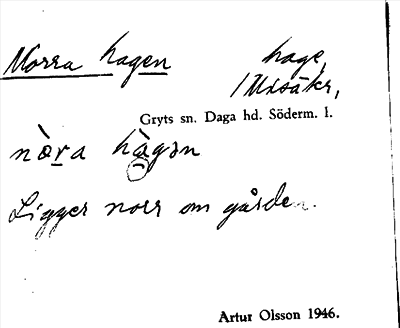 Norra hagen hage,
/ Misäkr,
Gryts sn. Daga hd. Söderm. l.
nò̱ra hàgən
Ligger norr om gården.
Artur Olsson 1946.